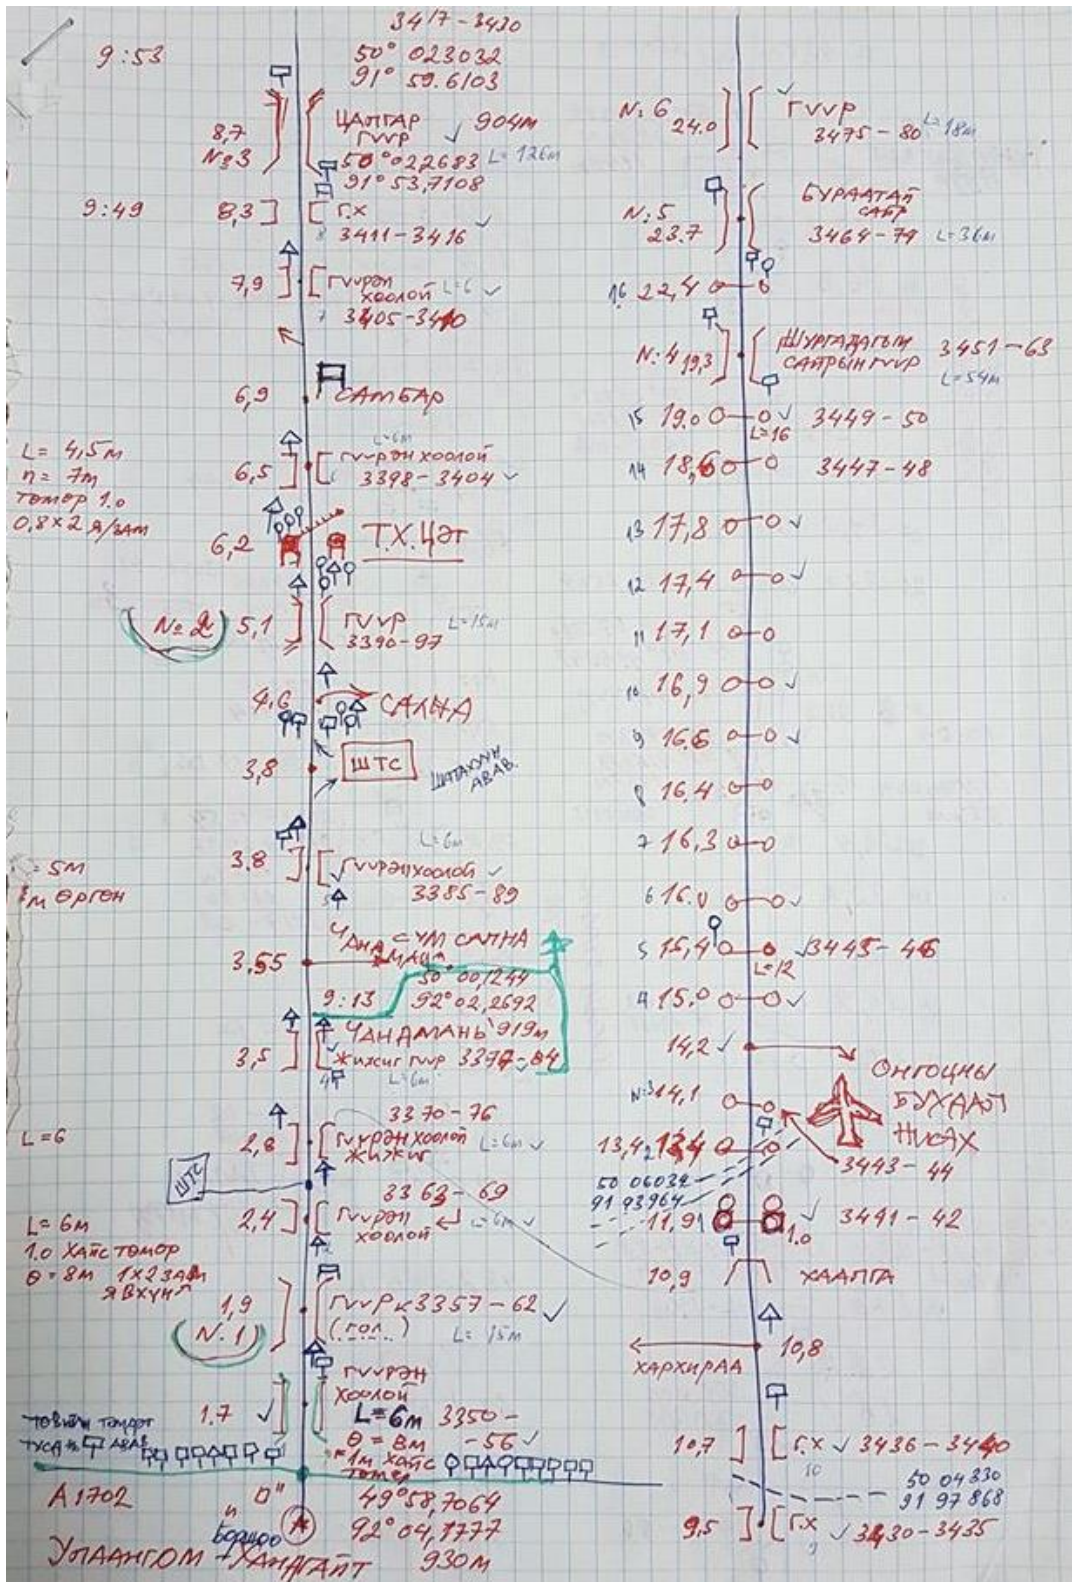 9:53
3417-3430
50° 023032
91° 59.6103
8,7
№3
ЦАЛГАР
ГҮҮР
904м
50° 022683
L=126м
91° 53,7108
9:49
8,3
Г.Х
8
3411-3416
7,9
ГҮҮРЭН
ХООЛОЙ
L=6
7
3405-3410
6,9
САМБАР
L= 4,5м
n= 7м
төмөр 1.0
0,8×2 я/зам
6,5
L=6м
ГҮҮРЭН ХООЛОЙ
3398-3404
6,2
Т.Х.ЦЭГ
№2
5,1
ГҮҮР
L=15м
3390-97
4,6
САЛНА
3,8
ШТС
ШАТАХУУН
АВАВ.
= 5м
м өргөн
3.8
L=6м
ГҮҮРЭН ХООЛОЙ
3385-89
3,55
СУМ САЛНА
50° 00,1244
9:13
92° 02,2692
ЧАНДМАНЬ 919м
3,5
жижиг гүүр
L=6м
L=6
3370-76
2,8
ГҮҮРЭН ХООЛОЙ
ЖИЖИГ
L=6м
ШТС
3363-69
L= 6м
1.0 хайс төмөр
Ө=8м 1×2 зам
явхүн
2,4
ГҮҮРЭН
ХООЛОЙ
L=6м
1,9
N:1
ГҮҮР
3357-62
(гол..)
L=15м
1.7
ГҮҮРЭН
ХООЛОЙ
L=6м 3350-
Ө=8м -56
1м хайс
төмөр
АВАВ
А1702
"0"
49° 58,7064
Боршоо
А
92° 04,1777
УЛААНГОМ - ХАНДГАЙТ 930м
N:6
24.0
ГҮҮР
3475-80
L=18м
N:5
23.7
БУРААТАЙ
САЙР
3464-74
L=36м
16 22,4
N:4 19,3
ШУРГАДАГЫН
САЙРЫН ГҮҮР
3451-63
L=54м
15 19.0
L=16
3449-50
14 18,6
3447-48
13 17,8
12 17,4
11 17,1
10 16,9
9 16.6
8 16.4
7 16,3
6 16.0
5 15,4
L=12
3445-46
4 15.0
14,2
ОНГОЦНЫ
БУУДАЛ
НИСЭХ
N:3 14,1
3443-44
13,4
50 06034
91 93964
11,9
1.0
3441-42
10,9
ХААЛГА
10,8
ХАРХИРАА
10,7
Г.Х
10
3436-3440
50 04330
91 97868
9,5
Г.Х
9
3430-3435